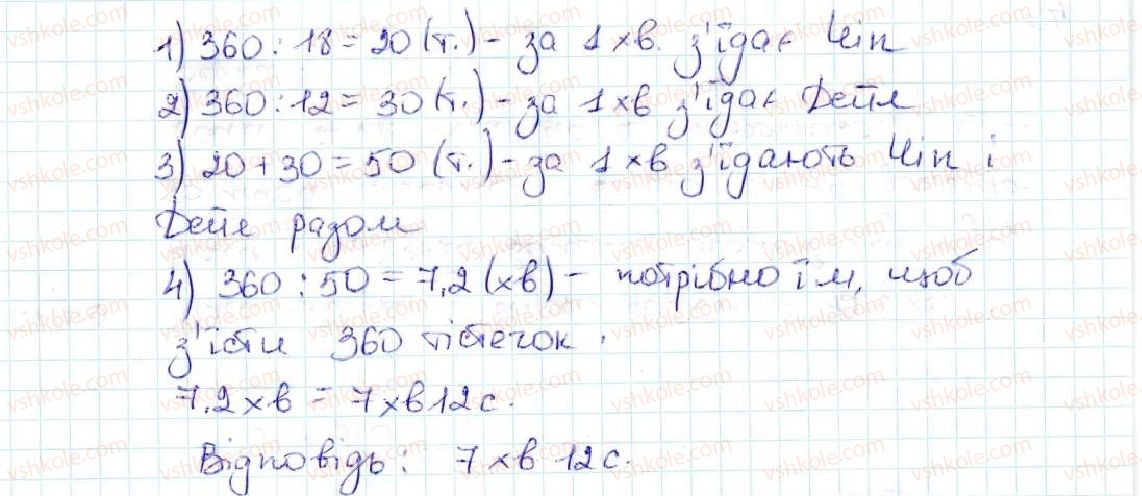 1) 360 : 18 = 20 (т.) - за 1 хв. з'їдає Чіп
2) 360 : 12 = 30 (т.) - за 1 хв з'їдає Дейл
3) 20 + 30 = 50 (т.) - за 1 хв з'їдають Чіп і
Дейл разом
4) 360 : 50 = 7,2 (хв) - потрібно їм, щоб
з'їсти 360 тістечок.
7,2 хв = 7 хв 12 с.
Відповідь: 7 хв 12 с.